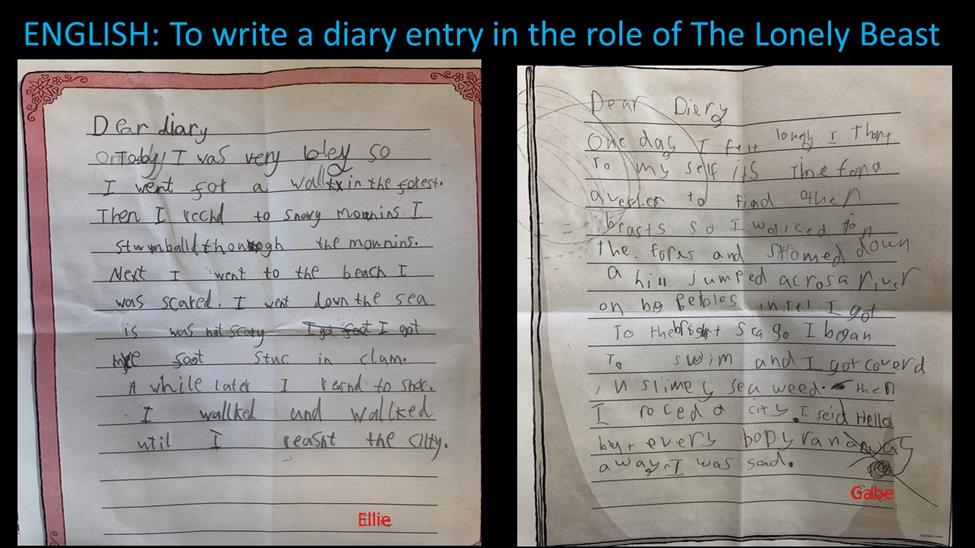 ENGLISH: To write a diary entry in the role of The Lonely Beast
Dear diary
Today I was very loley so
I went for a wallk in the forest.
Then I rechd to snowy mownins I
stumballd thowogh the mownins.
Next I went to the beach I
was scared. I went down the sea
is was not scary I got foot I got
me foot stuc in clam.
A while later I reand to shor.
I wallked and wallked
until I reasht the citty.
Ellie
Dear Diery
One day I felt lonely I thort
To my self its time for a
to find other
beasts so I walked
The fores and stomed down
a hill jumped acros a river
on big pebles intel I got
To the sea so I began
To swim and I got coverd
in slimey sea weed. then
I reced a city. I seid Hello
but every body ran
away. I was sad.
Gabe